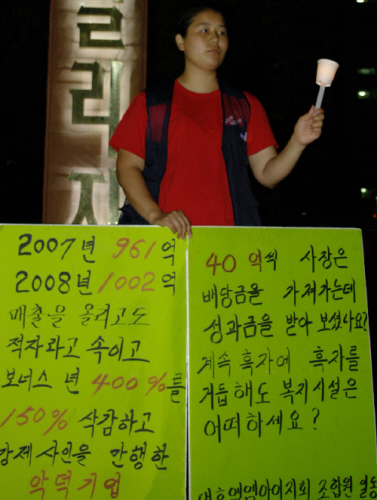 클리
자
2007년 961억
2008년 1002억
매출을 올리고도
적자라고 속이고
보너스 년 400%를
150% 삭감하고
강제사인을 만행한
악덕기업
40 억씩 사장은
배당금을 가져가는데
성과금을 받아 보셨나요?
계속 흑자에 흑자를
거듭해도 복지시설은
어떠하세요?
조합원 일동